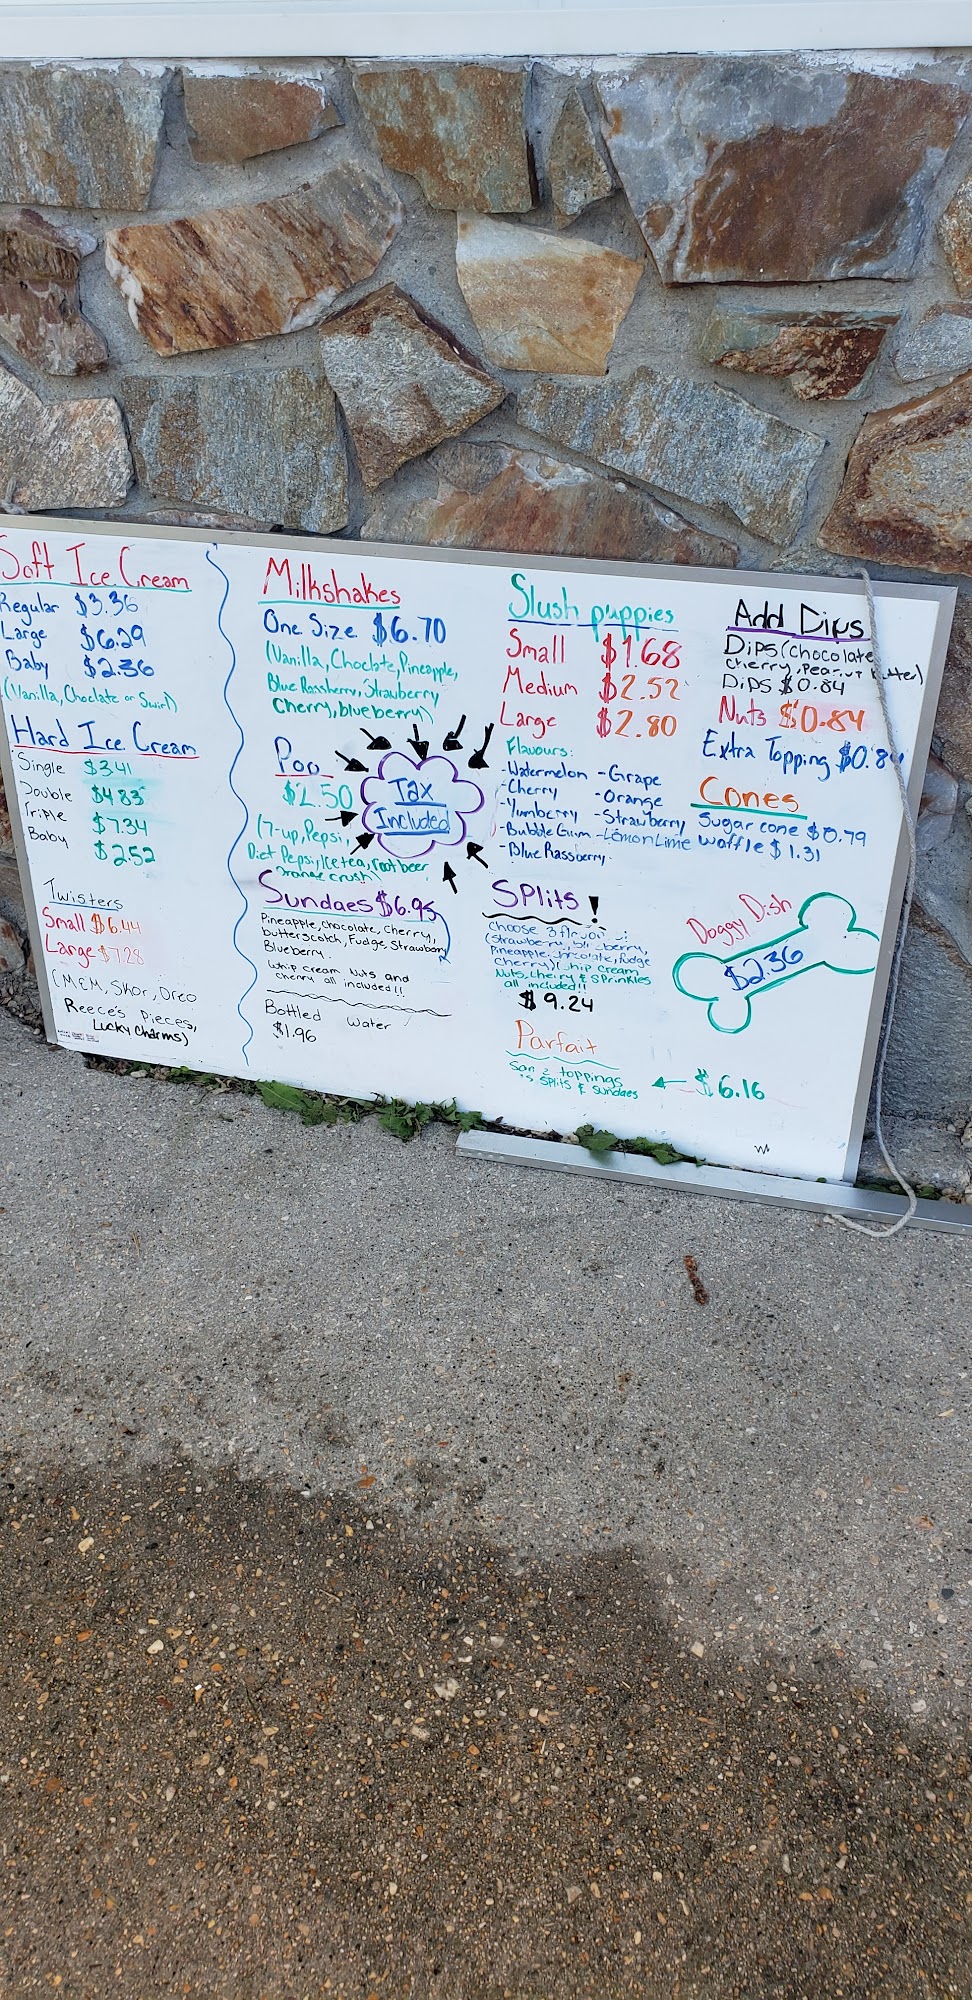 Soft Ice Cream
Regular $3.36
Large $6.29
Baby $2.36
(Vanilla, Choclate or Swirl)
Hard Ice Cream
Single $3.41
Double $4.83
Triple $7.34
Baby $2.52
Twisters
Small $6.44
Large $7.28
(M&M, Skor, Oreo
Reece's Pieces,
Lucky Charms)
Milkshakes
One Size $6.70
(Vanilla, Choclate, Pineapple,
Blue Rassberry, Strawberry
Cherry, blueberry)
Pop
$2.50
(7-up, Pepsi,
Diet Pepsi, Ice tea, root beer
orange crush)
Tax
Included
Sundaes $6.95
Pineapple, chocolate, Cherry,
butterscotch, Fudge, Strawberry
Blueberry
Whip cream Nuts and
cherry all included!!
Bottled Water
$1.96
Slush puppies
Small $1.68
Medium $2.52
Large $2.80
Flavours:
-Watermelon -Grape
-Cherry -Orange
-Yumberry -Strawberry
-Bubble Gum -Lemon Lime
-Blue Rassberry
Splits!
Choose 3
(Strawberry,
Pineapple, chocolate, fudge
Cherry) Whip cream
Nuts, cherry & sprinkles
all included!!
$9.24
Parfait
2 toppings
splits & sundaes
$6.16
Add Dips
Dips (chocolate
cherry, Peanut butter)
Dips $0.84
Nuts $0.84
Extra Topping $0.84
Cones
Sugar cone $0.79
Waffle $1.31
Doggy Dish
$2.36